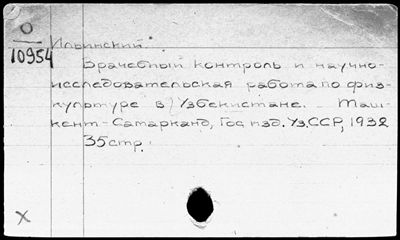 О
10954
Ильинский.
Врачебный контроль и научно-
исследовательская работа по физ-
культуре в Узбекистане. – Таш-
кент-Самарканд, Гос изд. Уз.ССР, 1932
35 стр.
X